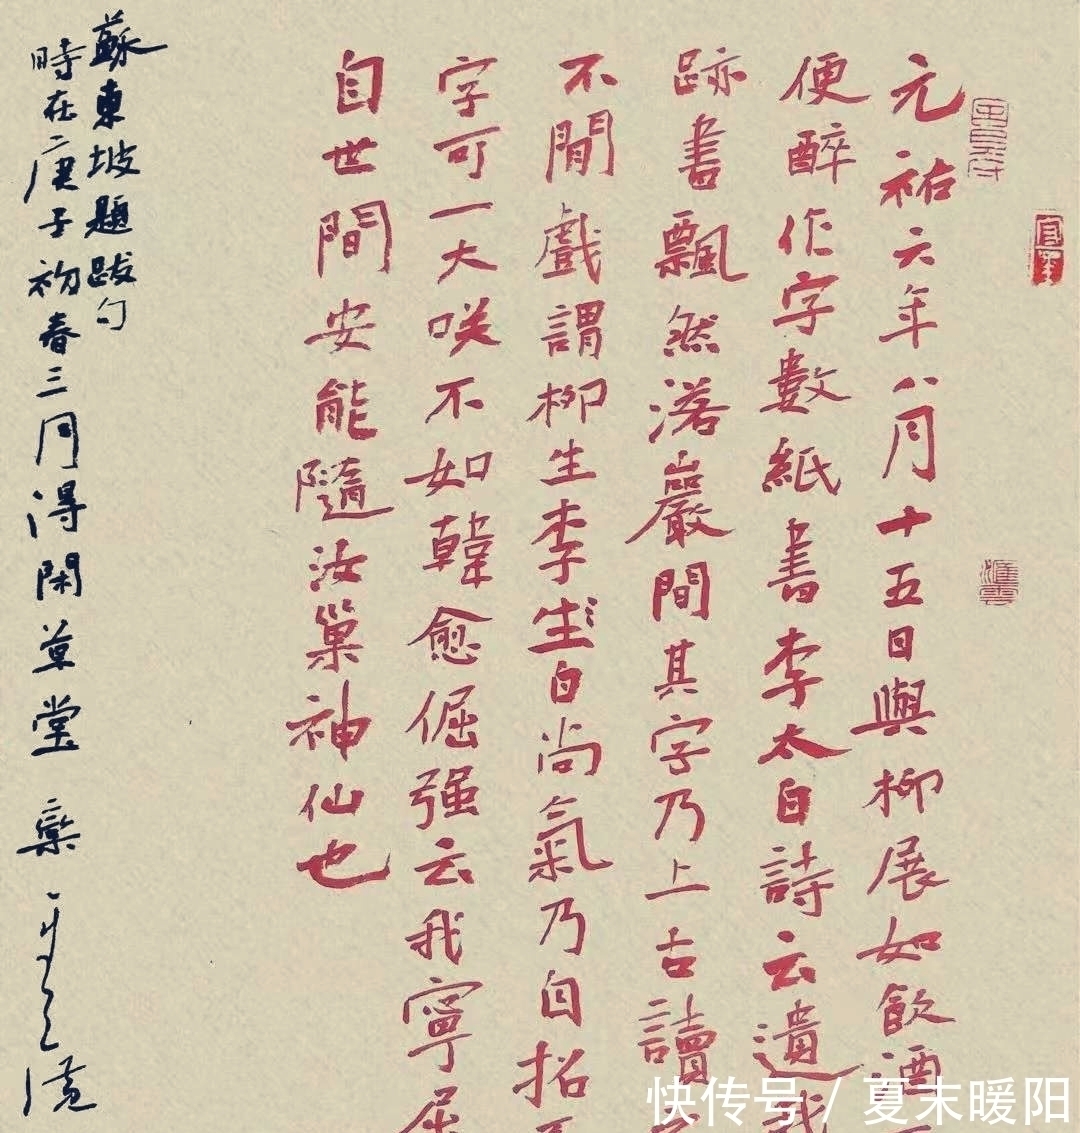 元祐六年八月十五日與柳展如飲酒
便醉作字數紙書李太白詩云遺我
跡書飄然落巖間其字乃上古讀
不閒戲謂柳生李生白尚氣乃自招
字可一大咲不如韓愈倔强云我寧屈
自世間安能隨汝巢神仙也
蘇東坡題跋句
時在庚子初春三月得閑草堂
快传号 / 夏末暖阳